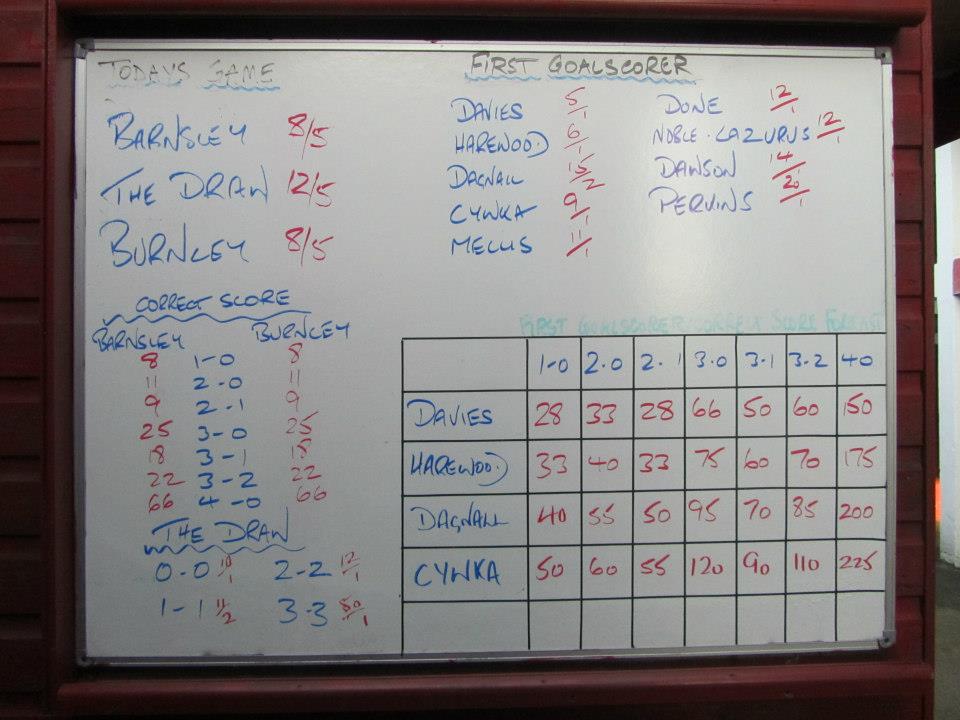 TODAYS GAME
BARNSLEY 8/5
THE DRAW 12/5
BURNLEY 8/5
FIRST GOALSCORER
DAVIES 5/1
HAREWOOD 6/1
DAGNALL 15/2
CYWKA 9/1
MELLIS 11/1
DONE 12/1
NOBLE-LAZURUS 12/1
DAWSON 14/1
PERVINS 20/1
CORRECT SCORE
BARNSLEY BURNLEY
8 1-0 8
11 2-0 11
9 2-1 9
25 3-0 25
18 3-1 18
22 3-2 22
66 4-0 66
THE DRAW
0-0 10/1 2-2 12/1
1-1 11/2 3-3 50/1
FIRST GOALSCORER CORRECT SCORE FORECAST
1-0 2.0 2.1 3.0 3.1 3-2 4-0
DAVIES 28 33 28 66 50 60 150
HAREWOOD 33 40 33 75 60 70 175
DAGNALL 40 55 50 95 70 85 200
CYWKA 50 60 55 120 90 110 225